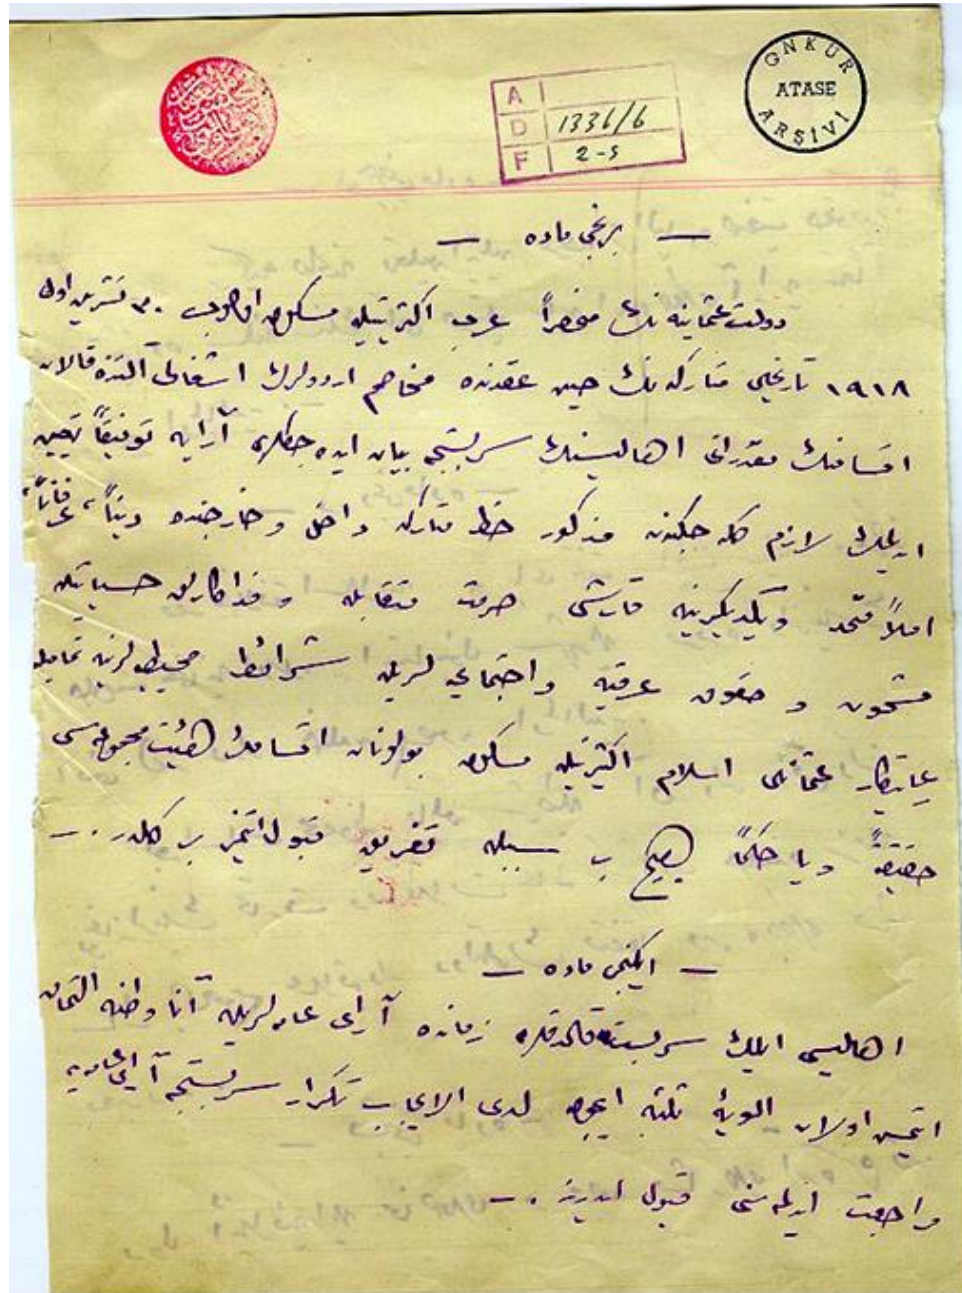 GNKUR
ATASE
ARŞİVİ
A
D 1336/6
F 2-5
— برنجى ماده —
دولت عثمانيه نك منحصراً عرب اكثريتيله مسكون اولوب ٣٠ تشرين اول
١٩١٨ تاريخلى متاركه نك حين عقدنده مخاصم اردولرك اشغالى آلتنده قالان
اقسامنك مقدراتى اهاليسنك سربستجه بيان ايده جكلرى آرايه توفيقاً تعيين
ايدلمك لازم كله جكندن مذكور خط متاركه داخل و خارجنده ديناً، عرفاً،
املاً متحد ويكديكرينه قارشى حرمت متقابله و فداكارلق حسياتيله
مشحون و حقوق عرقيه و اجتماعيه لريله شرائط محيطيه لرينه تماميله
رعايتكار عثمانلى اسلام اكثريتيله مسكون بولونان اقسامك هيئت مجموعه سى
حقيقةً ويا حكماً هيچ بر سببله تفريق قبول ايتمز بر كلدر. —
— ايكنجى ماده —
اهاليسى ايلك سربست قالدقلرى زمانده آراى عامه لريله آنا وطنه التحاق
ايتمش اولان الويهٔ ثلثه ايچون لدى الايجاب تكرار سربستجه آراى عامه يه
مراجعت ايدلمه سنى قبول ايدرز. —